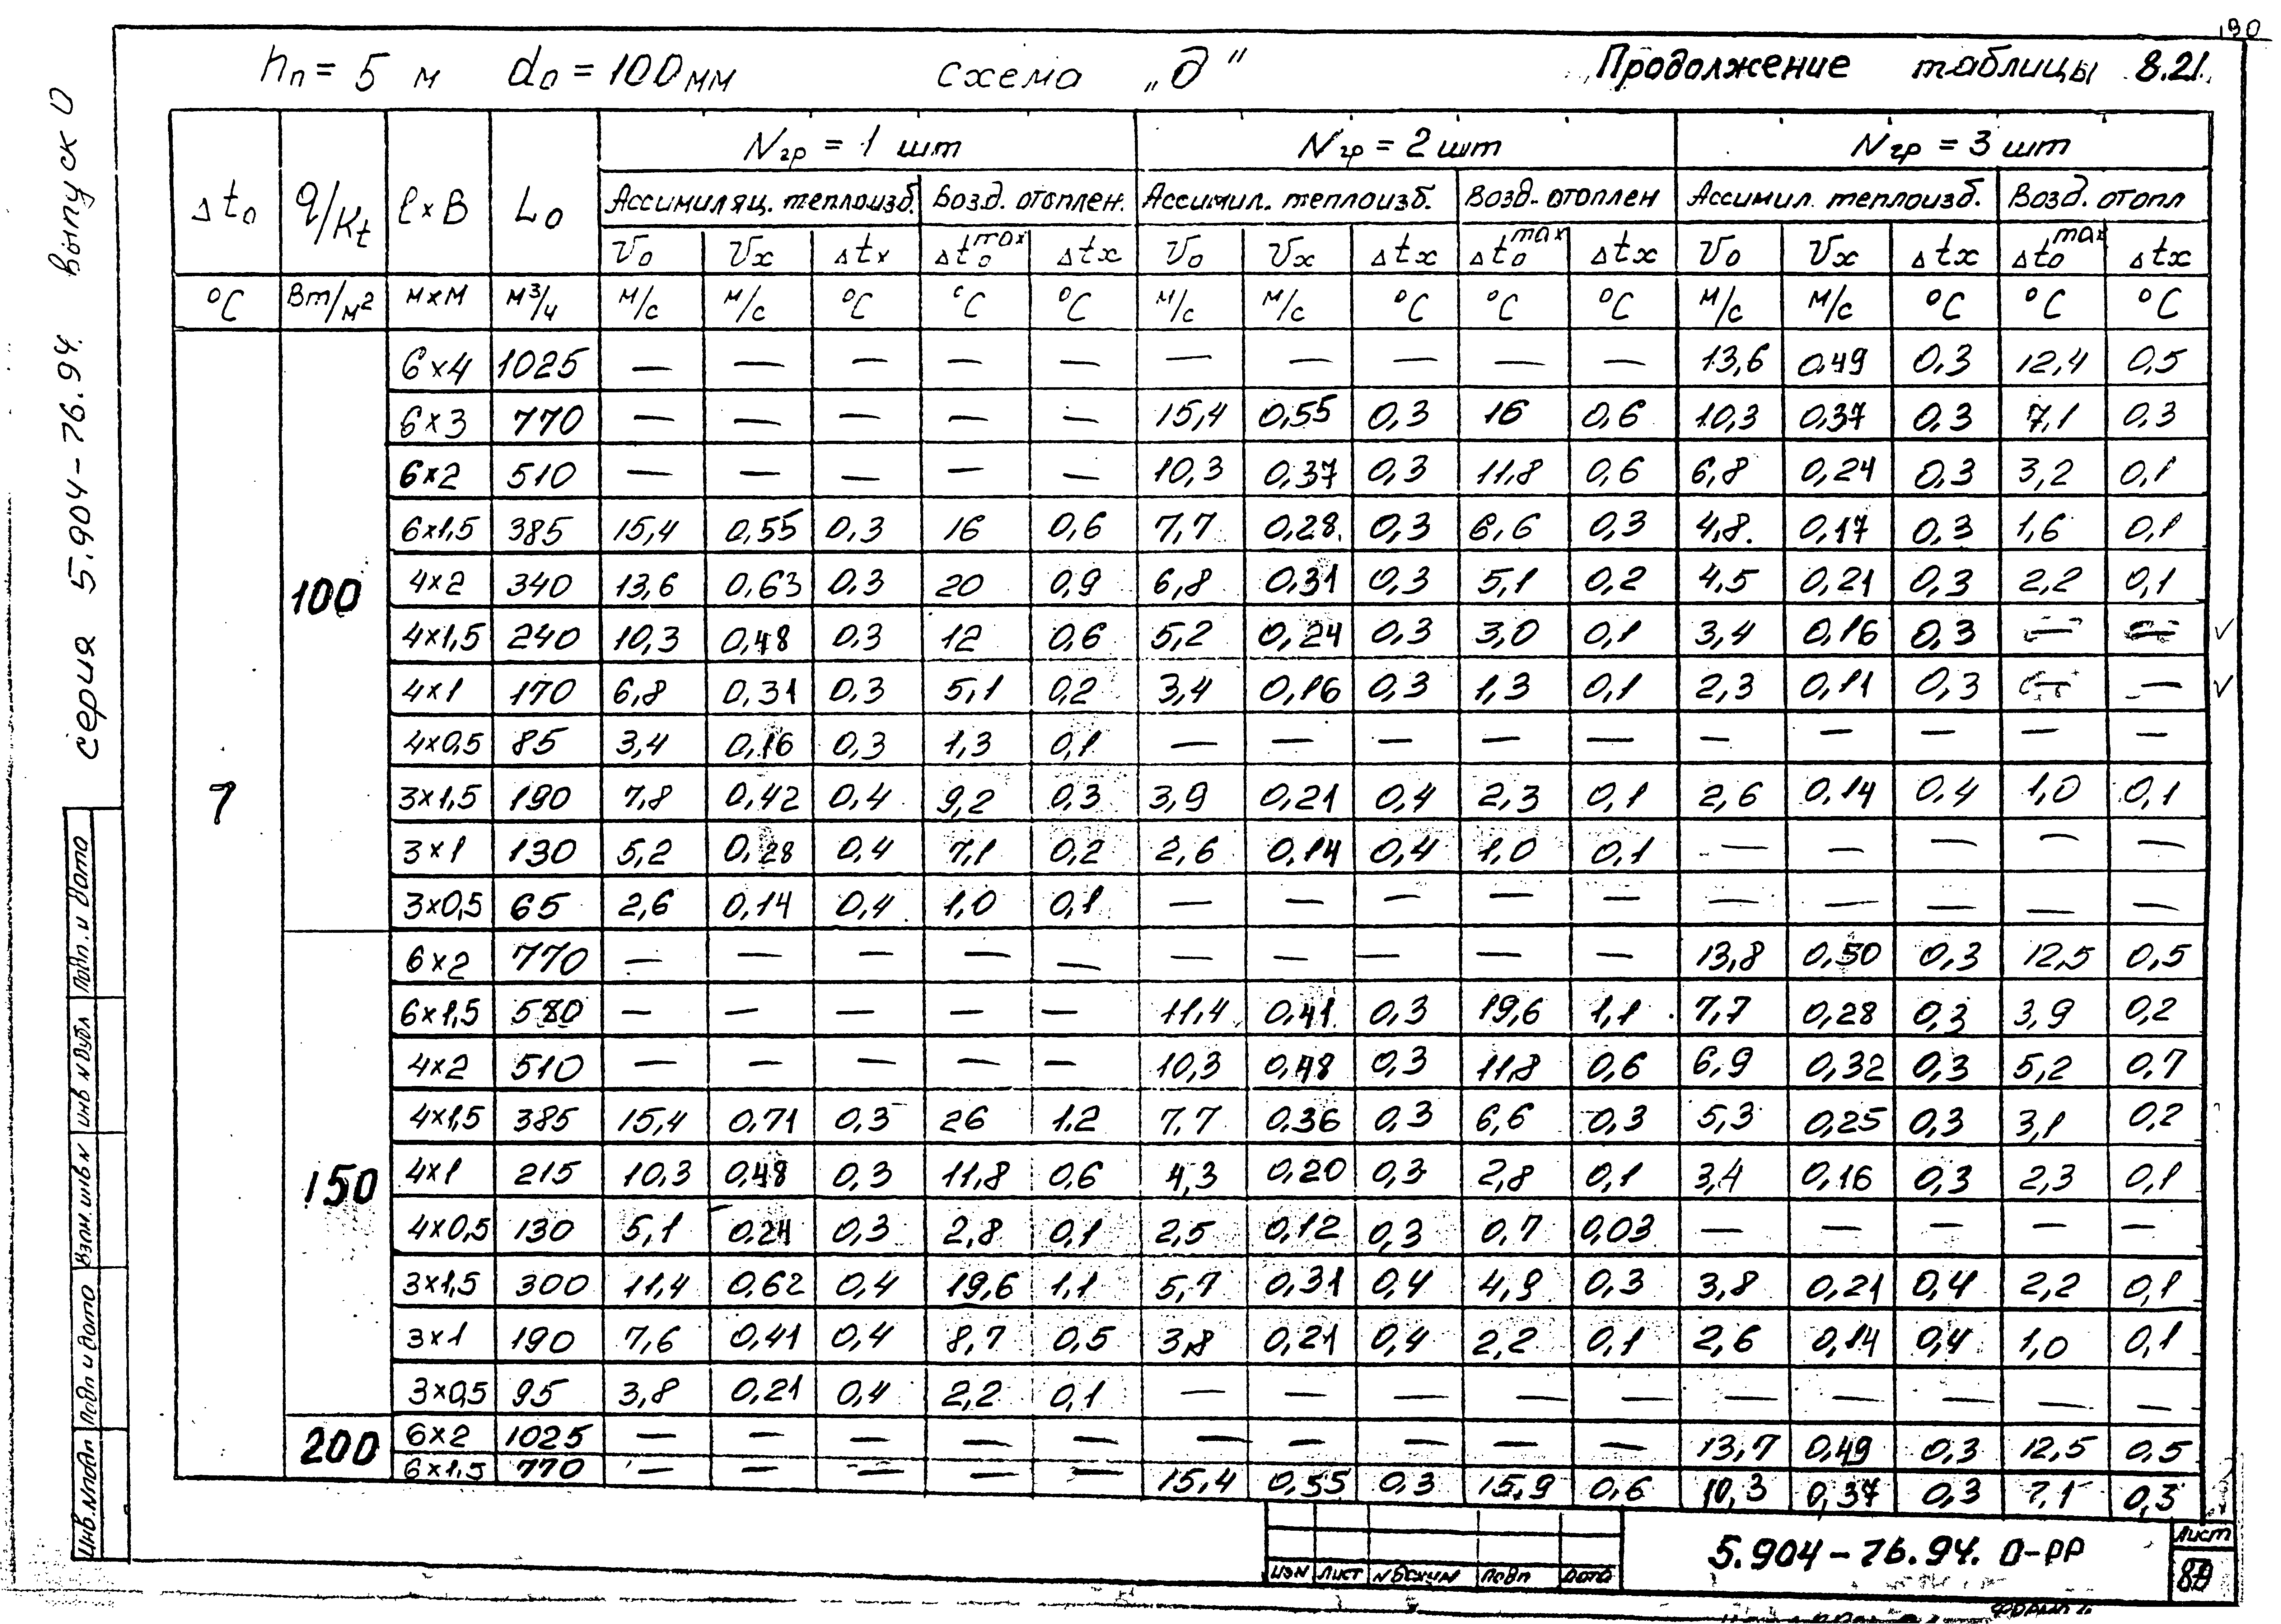 190
hп = 5 м   dо = 100 мм   схема „д"   Продолжение таблицы 8.21.
Nгр = 1 шт   Nгр = 2 шт   Nгр = 3 шт
Δtо   q/Kt   ℓ×B   Lо   Ассимиляц. теплоизб.   Возд. отоплен.   Ассимил. теплоизб.   Возд. отоплен   Ассимил. теплоизб.   Возд. отопл
Vо   Vx   Δtx   Δtоmax   Δtx   Vо   Vx   Δtx   Δtоmax   Δtx   Vо   Vx   Δtx   Δtоmax   Δtx
°C   Вт/м²   м×м   м³/ч   м/с   м/с   °C   °C   °C   м/с   м/с   °C   °C   °C   м/с   м/с   °C   °C   °C
7
100
6×4   1025   —   —   —   —   —   —   —   —   —   —   13,6   0,49   0,3   12,4   0,5
6×3   770   —   —   —   —   —   15,4   0,55   0,3   16   0,6   10,3   0,37   0,3   7,1   0,3
6×2   510   —   —   —   —   —   10,3   0,37   0,3   11,8   0,6   6,8   0,24   0,3   3,2   0,1
6×1,5   385   15,4   0,55   0,3   16   0,6   7,7   0,28   0,3   6,6   0,3   4,8   0,17   0,3   1,6   0,1
4×2   340   13,6   0,63   0,3   20   0,9   6,8   0,31   0,3   5,1   0,2   4,5   0,21   0,3   2,2   0,1
4×1,5   240   10,3   0,48   0,3   12   0,6   5,2   0,24   0,3   3,0   0,1   3,4   0,16   0,3   —   —   ✓
4×1   170   6,8   0,31   0,3   5,1   0,2   3,4   0,16   0,3   1,3   0,1   2,3   0,11   0,3   —   —   ✓
4×0,5   85   3,4   0,16   0,3   1,3   0,1   —   —   —   —   —   —   —   —   —   —
3×1,5   190   7,8   0,42   0,4   9,2   0,3   3,9   0,21   0,4   2,3   0,1   2,6   0,14   0,4   1,0   0,1
3×1   130   5,2   0,28   0,4   7,1   0,2   2,6   0,14   0,4   1,0   0,1   —   —   —   —   —
3×0,5   65   2,6   0,14   0,4   1,0   0,1   —   —   —   —   —   —   —   —   —   —
150
6×2   770   —   —   —   —   —   —   —   —   —   —   13,8   0,50   0,3   12,5   0,5
6×1,5   580   —   —   —   —   —   11,4   0,41   0,3   19,6   1,1   7,7   0,28   0,3   3,9   0,2
4×2   510   —   —   —   —   —   10,3   0,48   0,3   11,8   0,6   6,9   0,32   0,3   5,2   0,7
4×1,5   385   15,4   0,71   0,3   26   1,2   7,7   0,36   0,3   6,6   0,3   5,3   0,25   0,3   3,1   0,2
4×1   215   10,3   0,48   0,3   11,8   0,6   4,3   0,20   0,3   2,8   0,1   3,4   0,16   0,3   2,3   0,1
4×0,5   130   5,1   0,24   0,3   2,8   0,1   2,5   0,12   0,3   0,7   0,03   —   —   —   —   —
3×1,5   300   11,4   0,62   0,4   19,6   1,1   5,7   0,31   0,4   4,9   0,3   3,8   0,21   0,4   2,2   0,1
3×1   190   7,6   0,41   0,4   8,7   0,5   3,8   0,21   0,4   2,2   0,1   2,6   0,14   0,4   1,0   0,1
3×0,5   95   3,8   0,21   0,4   2,2   0,1   —   —   —   —   —   —   —   —   —   —
200
6×2   1025   —   —   —   —   —   —   —   —   —   —   13,7   0,49   0,3   12,5   0,5
6×1,5   770   —   —   —   —   —   15,4   0,55   0,3   15,9   0,6   10,3   0,37   0,3   7,1   0,3
изм   лист   № докум   подп   дата
5.904-76.94. 0-РР
Лист
89
формат
серия 5.904-76.94. выпуск 0
Подп. и дата
инв № дубл
Взам. инв №
Подп и дата
Инв. № подл